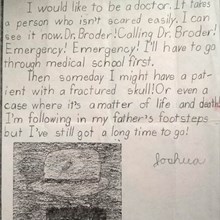 I would like to be a doctor. It takes
a person who isn't scared easily. I can
see it now. Dr. Broder! Calling Dr. Broder!
Emergency! Emergency! I'll have to go
through medical school first.
Then someday I might have a pat-
ient with a fractured skull! Or even a
case where it's a matter of life and death!
I'm following in my father's footsteps
but I've still got a long time to go!
Joshua